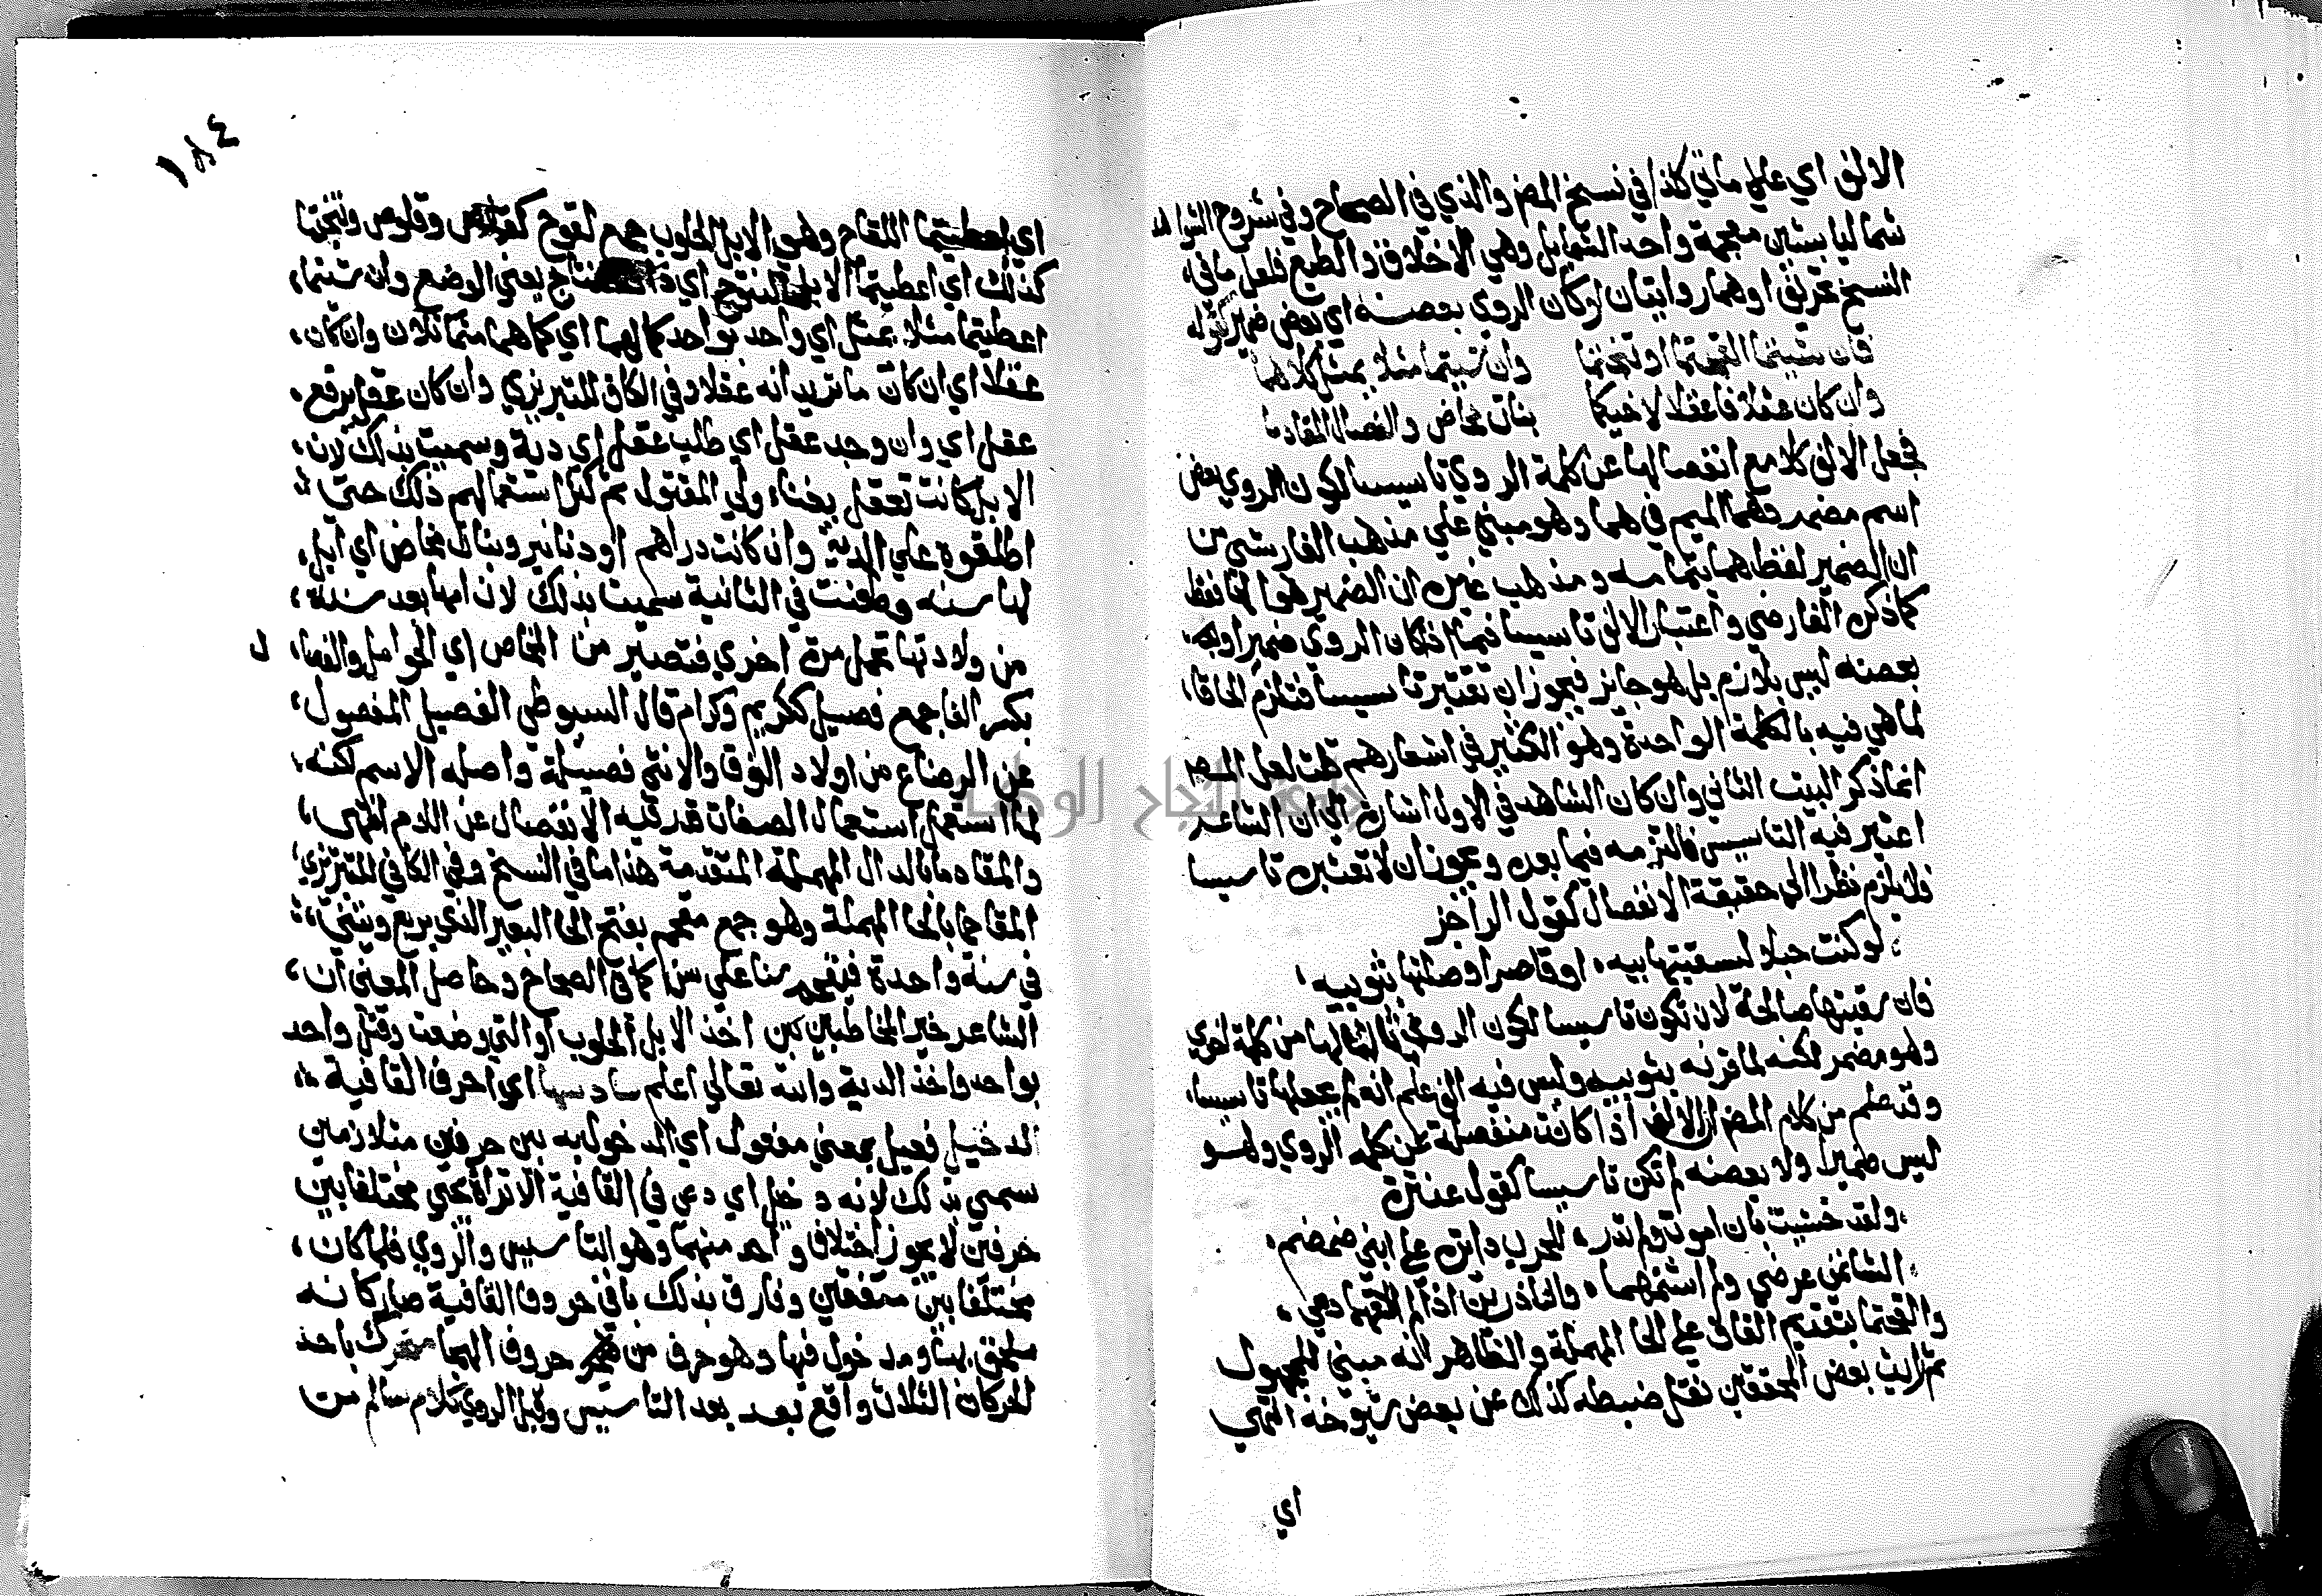 الالف اي علي ماتي كذا في نسخ المص والذي في الصحاح وفي شروح الشواهد
شماليا بشين معجمة واحد الشمايل وهي الاخلاق والطبع فلعل ما في
النسخ تحريف اوهما روايتان او كان الروي بعضه اي بعض ضمير كقوله
فان شيتما القحتما او نتجتما وان شيتما مثلا بمثل كلاهما
وان كان عقلا فاعقلا لاخيكما بنات مخاض والفصال المقادما
فجعل الالف كلا مع انفصالها عن كلمة الروي تاسيسا لكون الروي بعض
اسم مضمر وهما الميم في هما وهو مبني علي مذهب الفارسي من
ان الضمير لفظ هما بتمامه ومذهب غيره ان الضمير هو الها فقط
كما ذكره الفارضي واعتبار الالف تاسيسا فيما اذا كان الروي ضميرا او
بعضه ليس بلازم بل هو جايز فيجوز ان تعتبر تاسيسا فتلزم الحاقا
لما هي فيه بالكلمة الواحدة وهو الكثير في اشعارهم قلت لعل المص
انما ذكر البيت الثاني وان كان الشاهد في الاول اشارة الي ان الشاعر
اعتبر فيه التاسيس فالتزمه فيما بعده ويجوز ان لا تعتبره تاسيسا
فلا يلزم نظرا الي حقيقة الانفصال كقول الراجز
لو كنت حبلا لسقيتها بيه او قاصرا وصلتها بثوبيه
فان سقيتها صالحة لان تكون تاسيسا لكون الروي ثالثا لها من كلمة اخري
وهو مضمر لكنه لما قرنه بثوبيه وليس فيه الف علم انه لم يجعلها تاسيسا
وقد علم من كلام المص ان الالف اذا كانت منفصلة عن كلمه الروي وهو
ليس ضميرا ولا بعضه لم تكن تاسيسا كقول عنترة
ولقد خشيت بان اموت ولم تدر للحرب دايره علي ابني ضمضم
الشاتمي عرضي ولم اشتمهما والناذرين اذا لم القهما دمي
والقحتما بتقديم القاف علي الحا المهملة والظاهر انه مبني للمجهول
ثم رايت بعض المحققين نقل ضبطه كذلك عن بعض شيوخه انتهي
اي
١٨٤
اي اعطيتما اللقاح وهو الابل الحلوب جمع لقوح كقلاص وقلوص ونتجتما
كذلك اي اعطيتما الابل النتوج اي ذات نتاج يعني الوضع وان شيتما
اعطيتما مثلا بمثل اي واحد بواحد كما لهما اي كما هما متماثلان وان كان
عقلا اي ان كان ما تريد انه عقلا وفي الكافي للتبريزي وان كان عقل برفع
عقل اي وان وجد عقل اي طلب عقل اي دية وسميت بذلك لان
الابل كانت تعقل بفناء ولي المقتول ثم كثر استعمالهم ذلك حتي
اطلقوه علي الدية وان كانت دراهم او دنانير وبنات مخاض اي ابل
لها سنه وطعنت في الثانية سميت بذلك لان امها بعد سنة
من ولادتها تحمل مرة اخري فتصير من المخاض اي الحوامل والفصا
ل
بكسر الفا جمع فصيل ككريم وكرام قال السيوطي الفصيل المفصول
عن الرضاع من اولاد النوق والانثي فصيلة واصله الاسم لكنه
لما استعمل استعمال الصفات قدر فيه الانفصال عن اللام انتهي
والمقادما بالدال المهملة المتقدمة هذا ما في النسخ وفي الكافي للتبريزي
المقاحما بالحا المهملة وهو جمع مقحم بفتح الحا البعير الذي يربع ويثني
في سنة واحدة فيقحم سنا علي سن كما في الصحاح وحاصل المعني ان
الشاعر خير المخاطبين بين اخذ الابل الحلوب او التي وضعت وقتل واحد
بواحد واخذ الدية والله تعالي اعلم سادسها اي احرف القافية
الدخيل فعيل بمعني مفعول اي المدخول به بين حرفين متلازمين
سمي بذلك لانه دخل اي دعي في القافية الا تراه يجي مختلفا بين
حرفين لا يجوز اختلاف واحد منهما وهو التاسيس والروي فلما كان
مختلفا بين متفقين وفارق بذلك باقي حروف القافية صار كانه
ملحق بها ومدخول فيها وهو حرف من حروف الهجا متحرك باحد
الحركات الثلاث واقع بعد بعد التاسيس وقبل الروي كلام سالم من